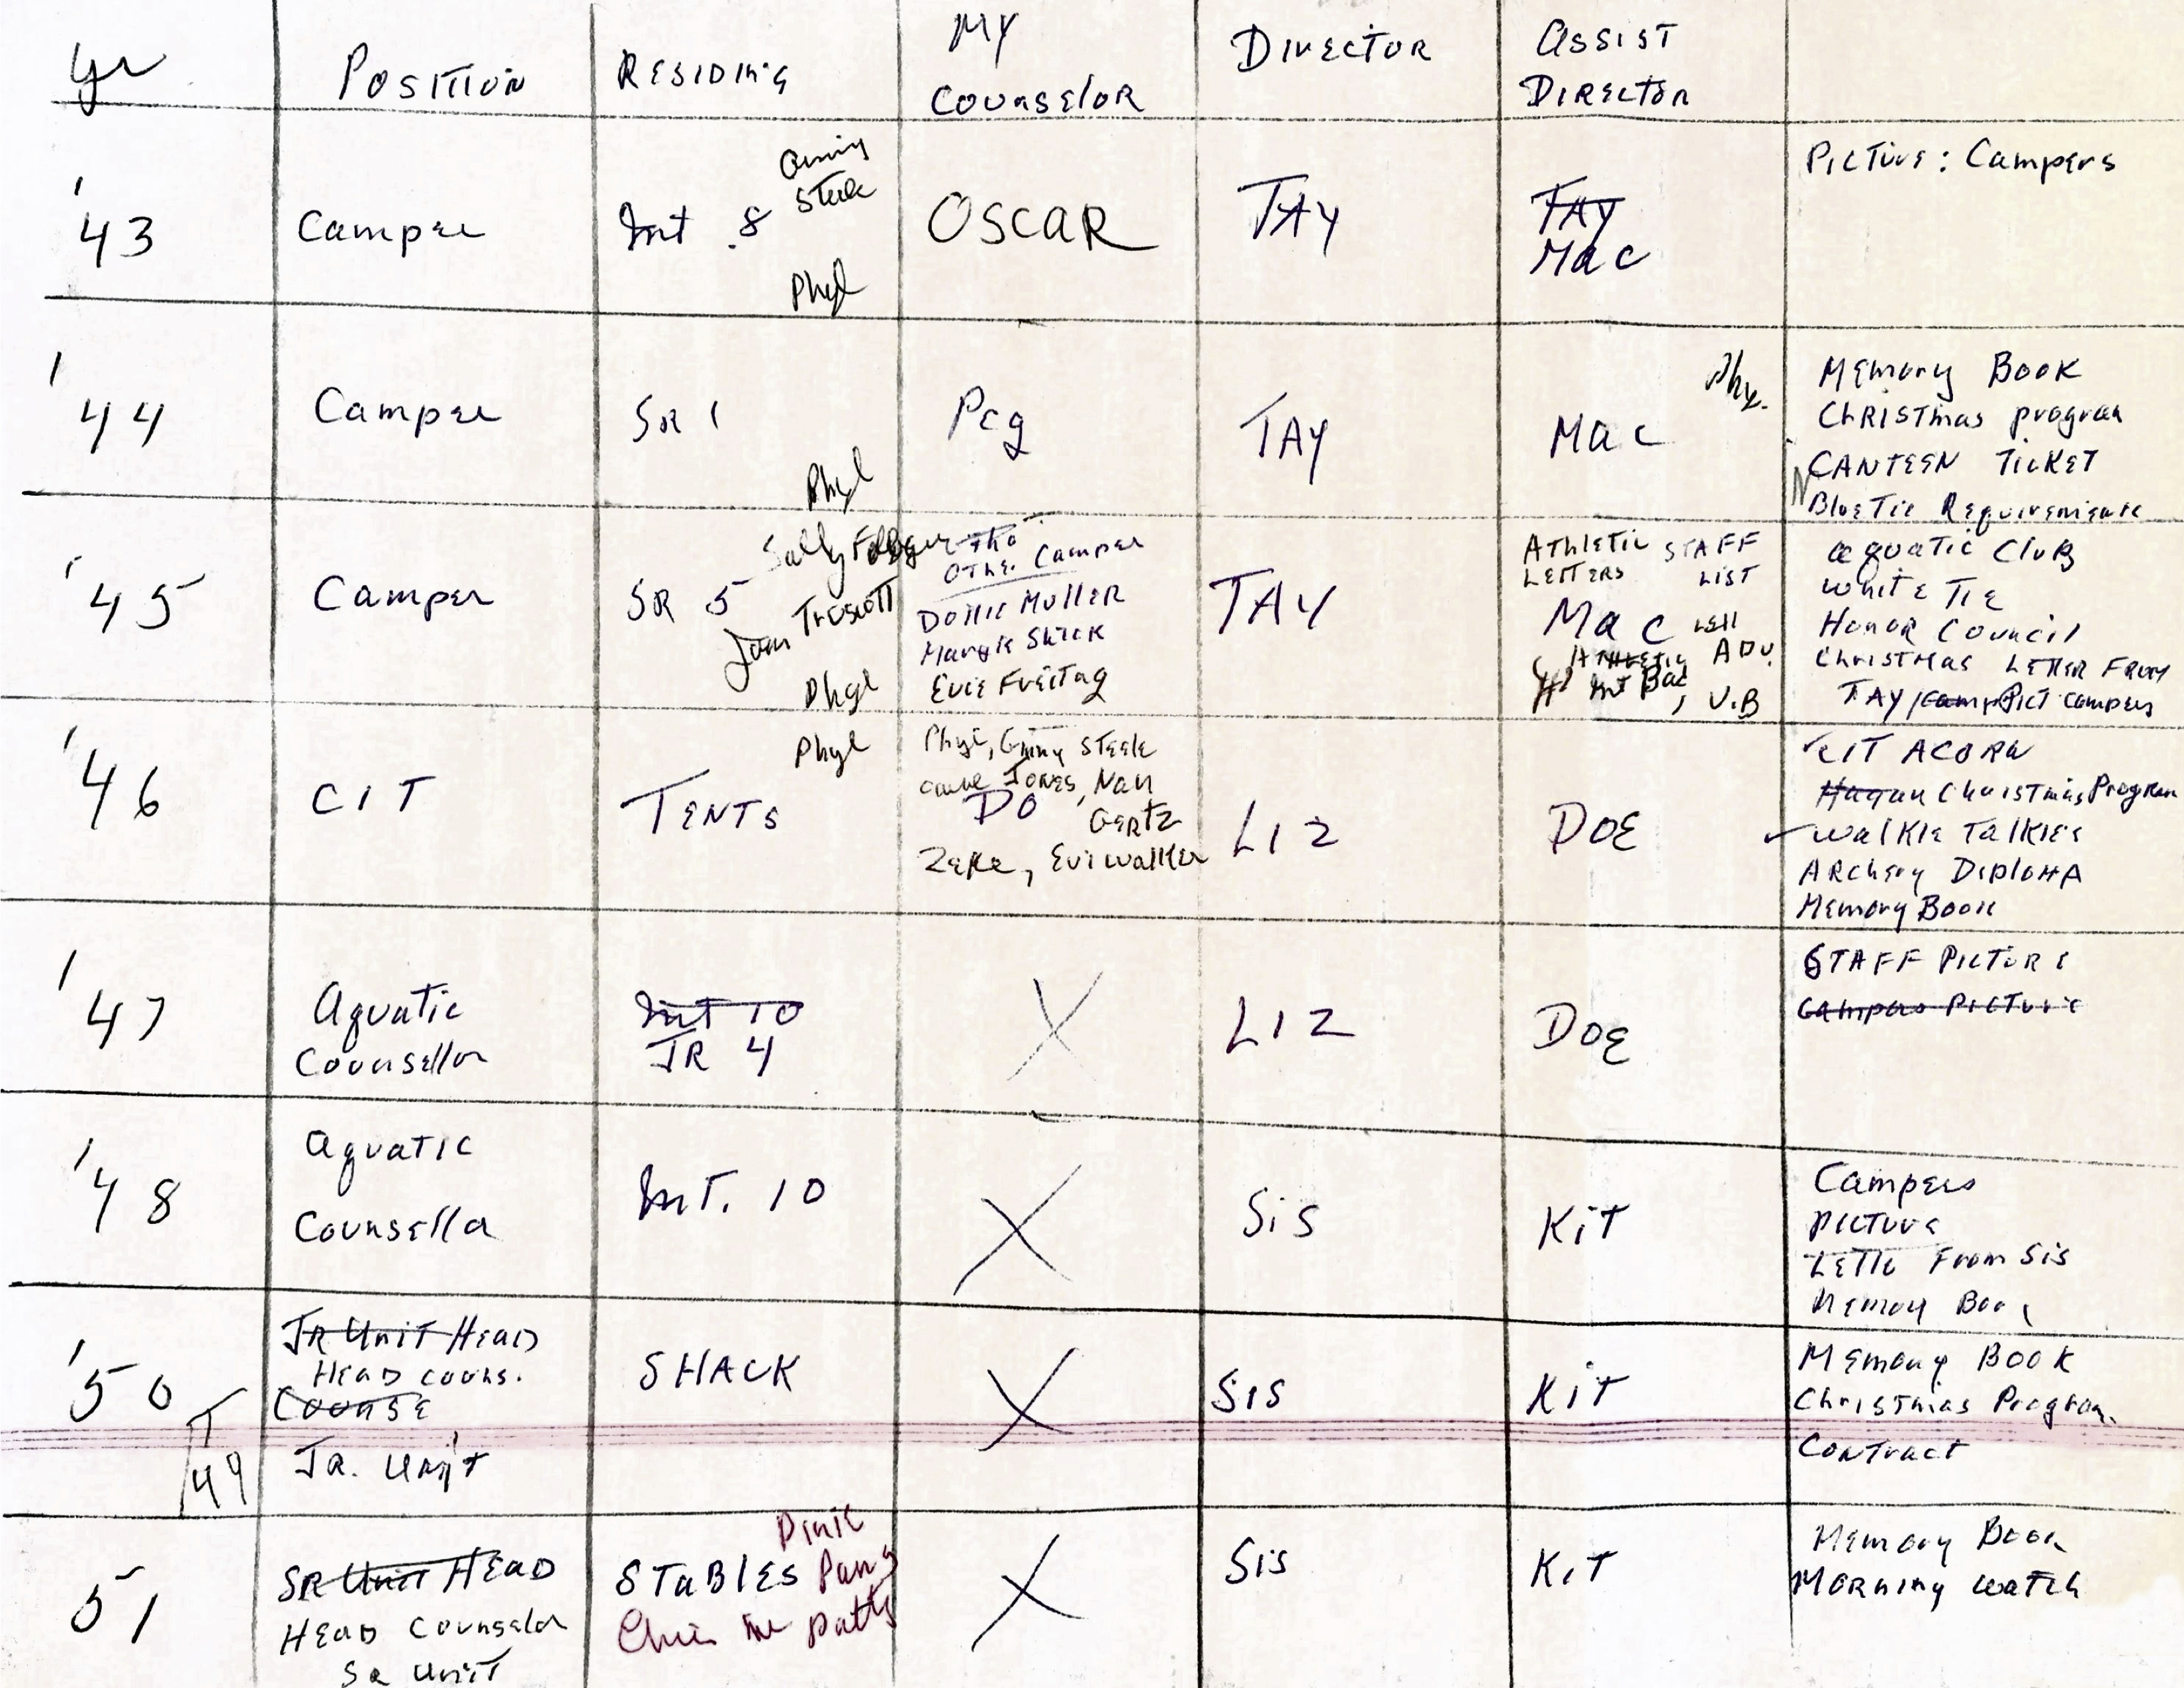 Yr
Position
Residing
My
Counselor
Director
Assist
Director
'43
Camper
Int 8
Ginny
Steele
Phyl
OSCAR
TAY
TAY
Mac
Picture: Campers
'44
Camper
SR 1
Phyl
Peg
TAY
Mac
Phy.
Memory Book
Christmas program
CANTEEN TICKET
Blue Tie Requirements
'45
Camper
SR 5
Sally
Joan Truscott
Phyl
Other Camper
Dottie Muller
Margie Shick
Evie Freitag
TAY
Athletic STAFF
LETTERS LIST
Mac
Athletic ADV.
Int Bac, V.B
aquatic Club
White Tie
Honor Council
Christmas LETTER FROM
TAY / Camp Pict campers
'46
CIT
TENTS
Phyl
Phyl, Ginny Steele
Jones, Nan
DO Gertz
Zeke, Evi Walker
LIZ
DOE
CIT ACORN
Christmas Program
Walkie Talkies
Archery DiploMA
Memory Book
'47
Aquatic
Counsellor
Int 10
JR 4
X
LIZ
DOE
STAFF PICTURE
Campers Picture
'48
Aquatic
Counsellor
Int. 10
X
Sis
KiT
Campers
Picture
Letter From Sis
Memory Book
'50
'49
JR Unit HEAD
HEAD couns.
Counse
JR. Unit
SHACK
X
SIS
KiT
Memory Book
Christmas Program
Contract
51
SR Unit HEAD
HEAD Counselor
SR Unit
STABLES
Dinie
Pam
Patty
X
Sis
KiT
Memory Book
Morning Watch